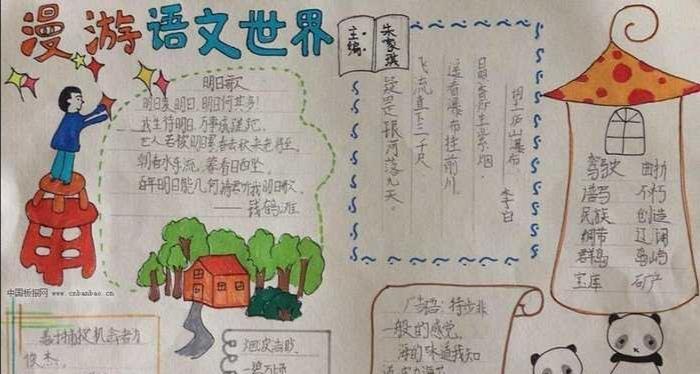 漫游语文世界
主编:
朱家琪
明日歌
明日复明日,明日何其多!
我生待明日,万事成蹉跎.
世人若被明日累,春去秋来老将至.
朝看水东流,暮看日西坠.
百年明日能几何,请君听我明日歌.
——钱鹤滩
望庐山瀑布
李白
日照香炉生紫烟,
遥看瀑布挂前川.
飞流直下三千尺,
疑是银河落九天
驾驶 曲折
谱写 不朽
民族 创造
绸带 辽阔
群岛 岛屿
宝库 矿产
中国板报网 www.cnbanbao.cn
善于捕捉机会者为
俊杰.
烟波浩眇
一碧万顷
广告语:特步非
一般的感觉,
海的味道我知